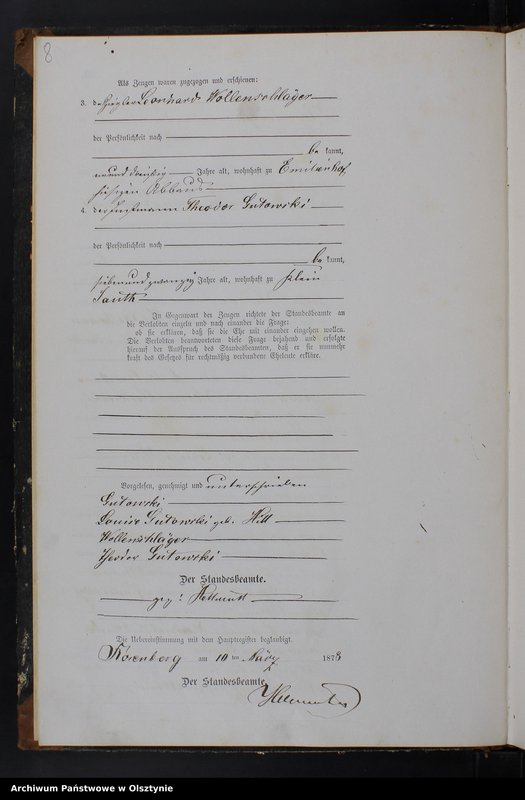 8
Als Zeugen waren zugezogen und erschienen:
3. der Ziegler Leonhard Wollenschläger
der Persönlichkeit nach
be kannt,
neunund dreißig Jahre alt, wohnhaft zu Emilienhof
hiesigen Abbaus
4. der Instmann Theodor Gutowski
der Persönlichkeit nach
be kannt,
siebenundzwanzig Jahre alt, wohnhaft zu Klein
Tauth
In Gegenwart der Zeugen richtete der Standesbeamte an
die Verlobten einzeln und nach einander die Frage:
ob sie erklären, daß sie die Ehe mit einander eingehen wollen.
Die Verlobten beantworteten diese Frage bejahend und erfolgte
hierauf der Ausspruch des Standesbeamten, daß er sie nunmehr
kraft des Gesetzes für rechtmäßig verbundene Eheleute erkläre.
Vorgelesen, genehmigt und unterschrieben
Gutowski
Louise Gutowski geb. Hitt
Wollenschläger
Theodor Gutowski
Der Standesbeamte.
gez: Hellmutt
Die Uebereinstimmung mit dem Hauptregister beglaubigt.
am 10 ten März 1878
Der Standesbeamte.
Archiwum Państwowe w Olsztynie